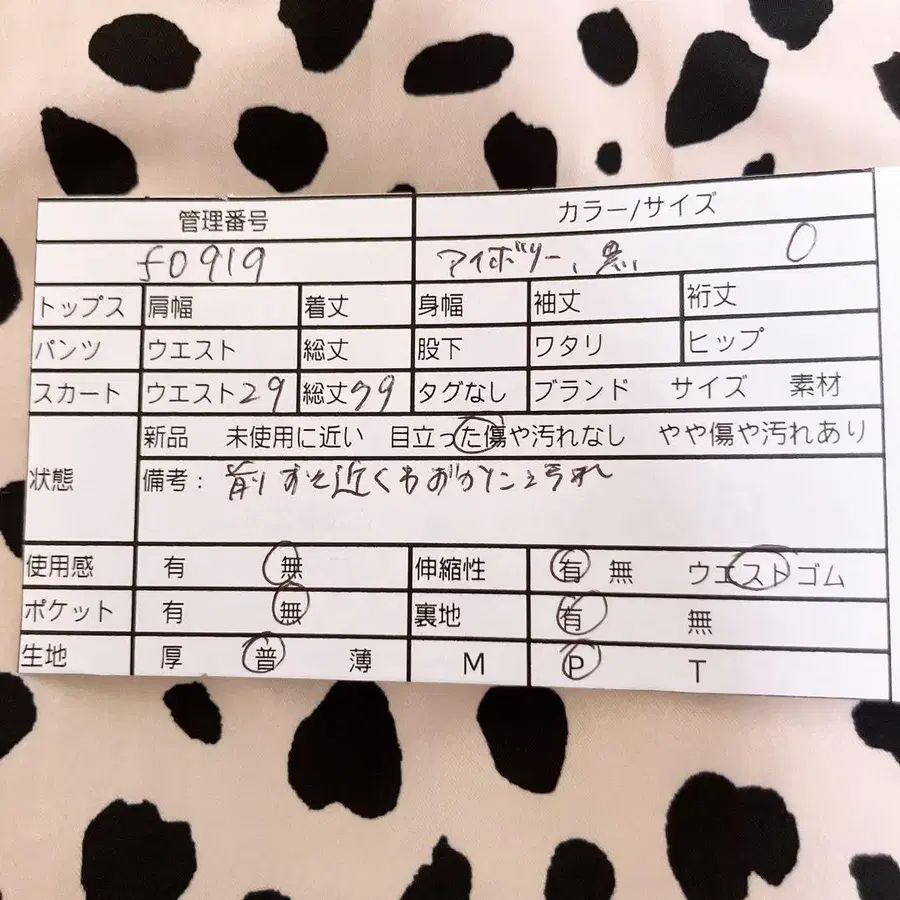 管理番号 カラー/サイズ
f0919 アイボリー、黒 0
トップス 肩幅 着丈 身幅 袖丈 裄丈
パンツ ウエスト 総丈 股下 ワタリ ヒップ
スカート ウエスト29 総丈79 タグなし ブランド サイズ 素材
状態 新品 未使用に近い 目立った傷や汚れなし やや傷や汚れあり
備考：前すそ近く 汚れ
使用感 有 無 伸縮性 有 無 ウエストゴム
ポケット 有 無 裏地 有 無
生地 厚 普 薄 M P T